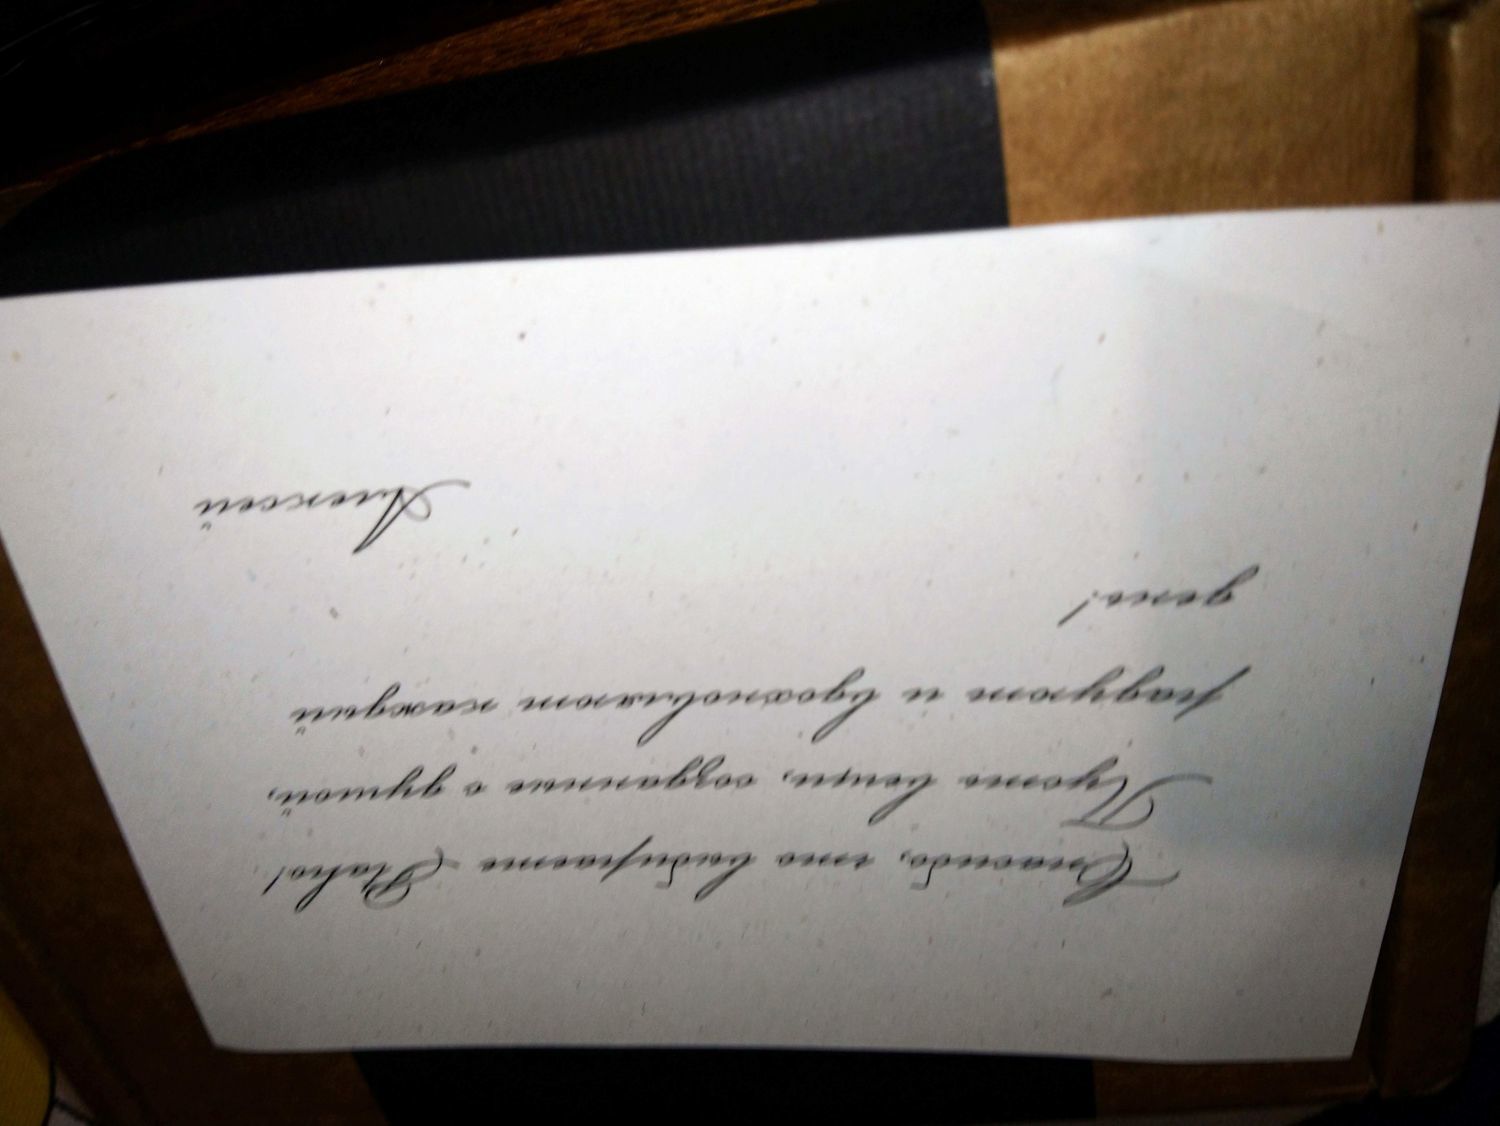 Спасибо, что выбираете Rako!
Пусть вещи, созданные с душой,
радуют и вдохновляют каждый
день!
Алексей